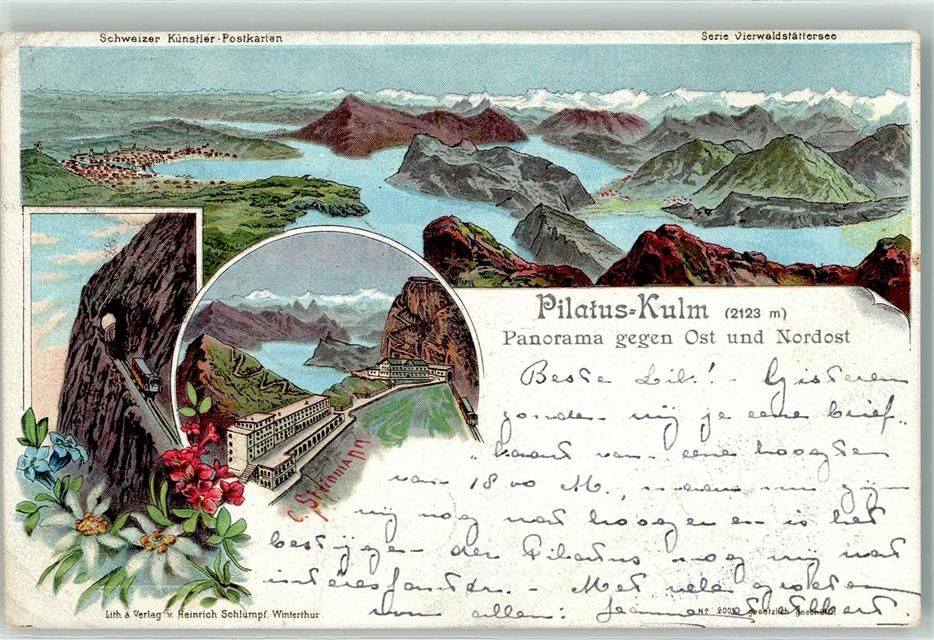 Schweizer Künstler-Postkarten
Serie Vierwaldstättersee
Pilatus-Kulm (2123 m)
Panorama gegen Ost und Nordost
Beste Lili! - Gisteren
zonden wij je eene brief-
kaart van eene hoogte
van 1800 M., nu zijn
wij nog wat hooger en is het
bestijgen der Pilatus nog wat
interessanter. - Met vele groeten
van allen. Jeanne
C. Steinmann
Lith & Verlag v. Heinrich Schlumpf. Winterthur
No 2000 gesetzlich geschützt